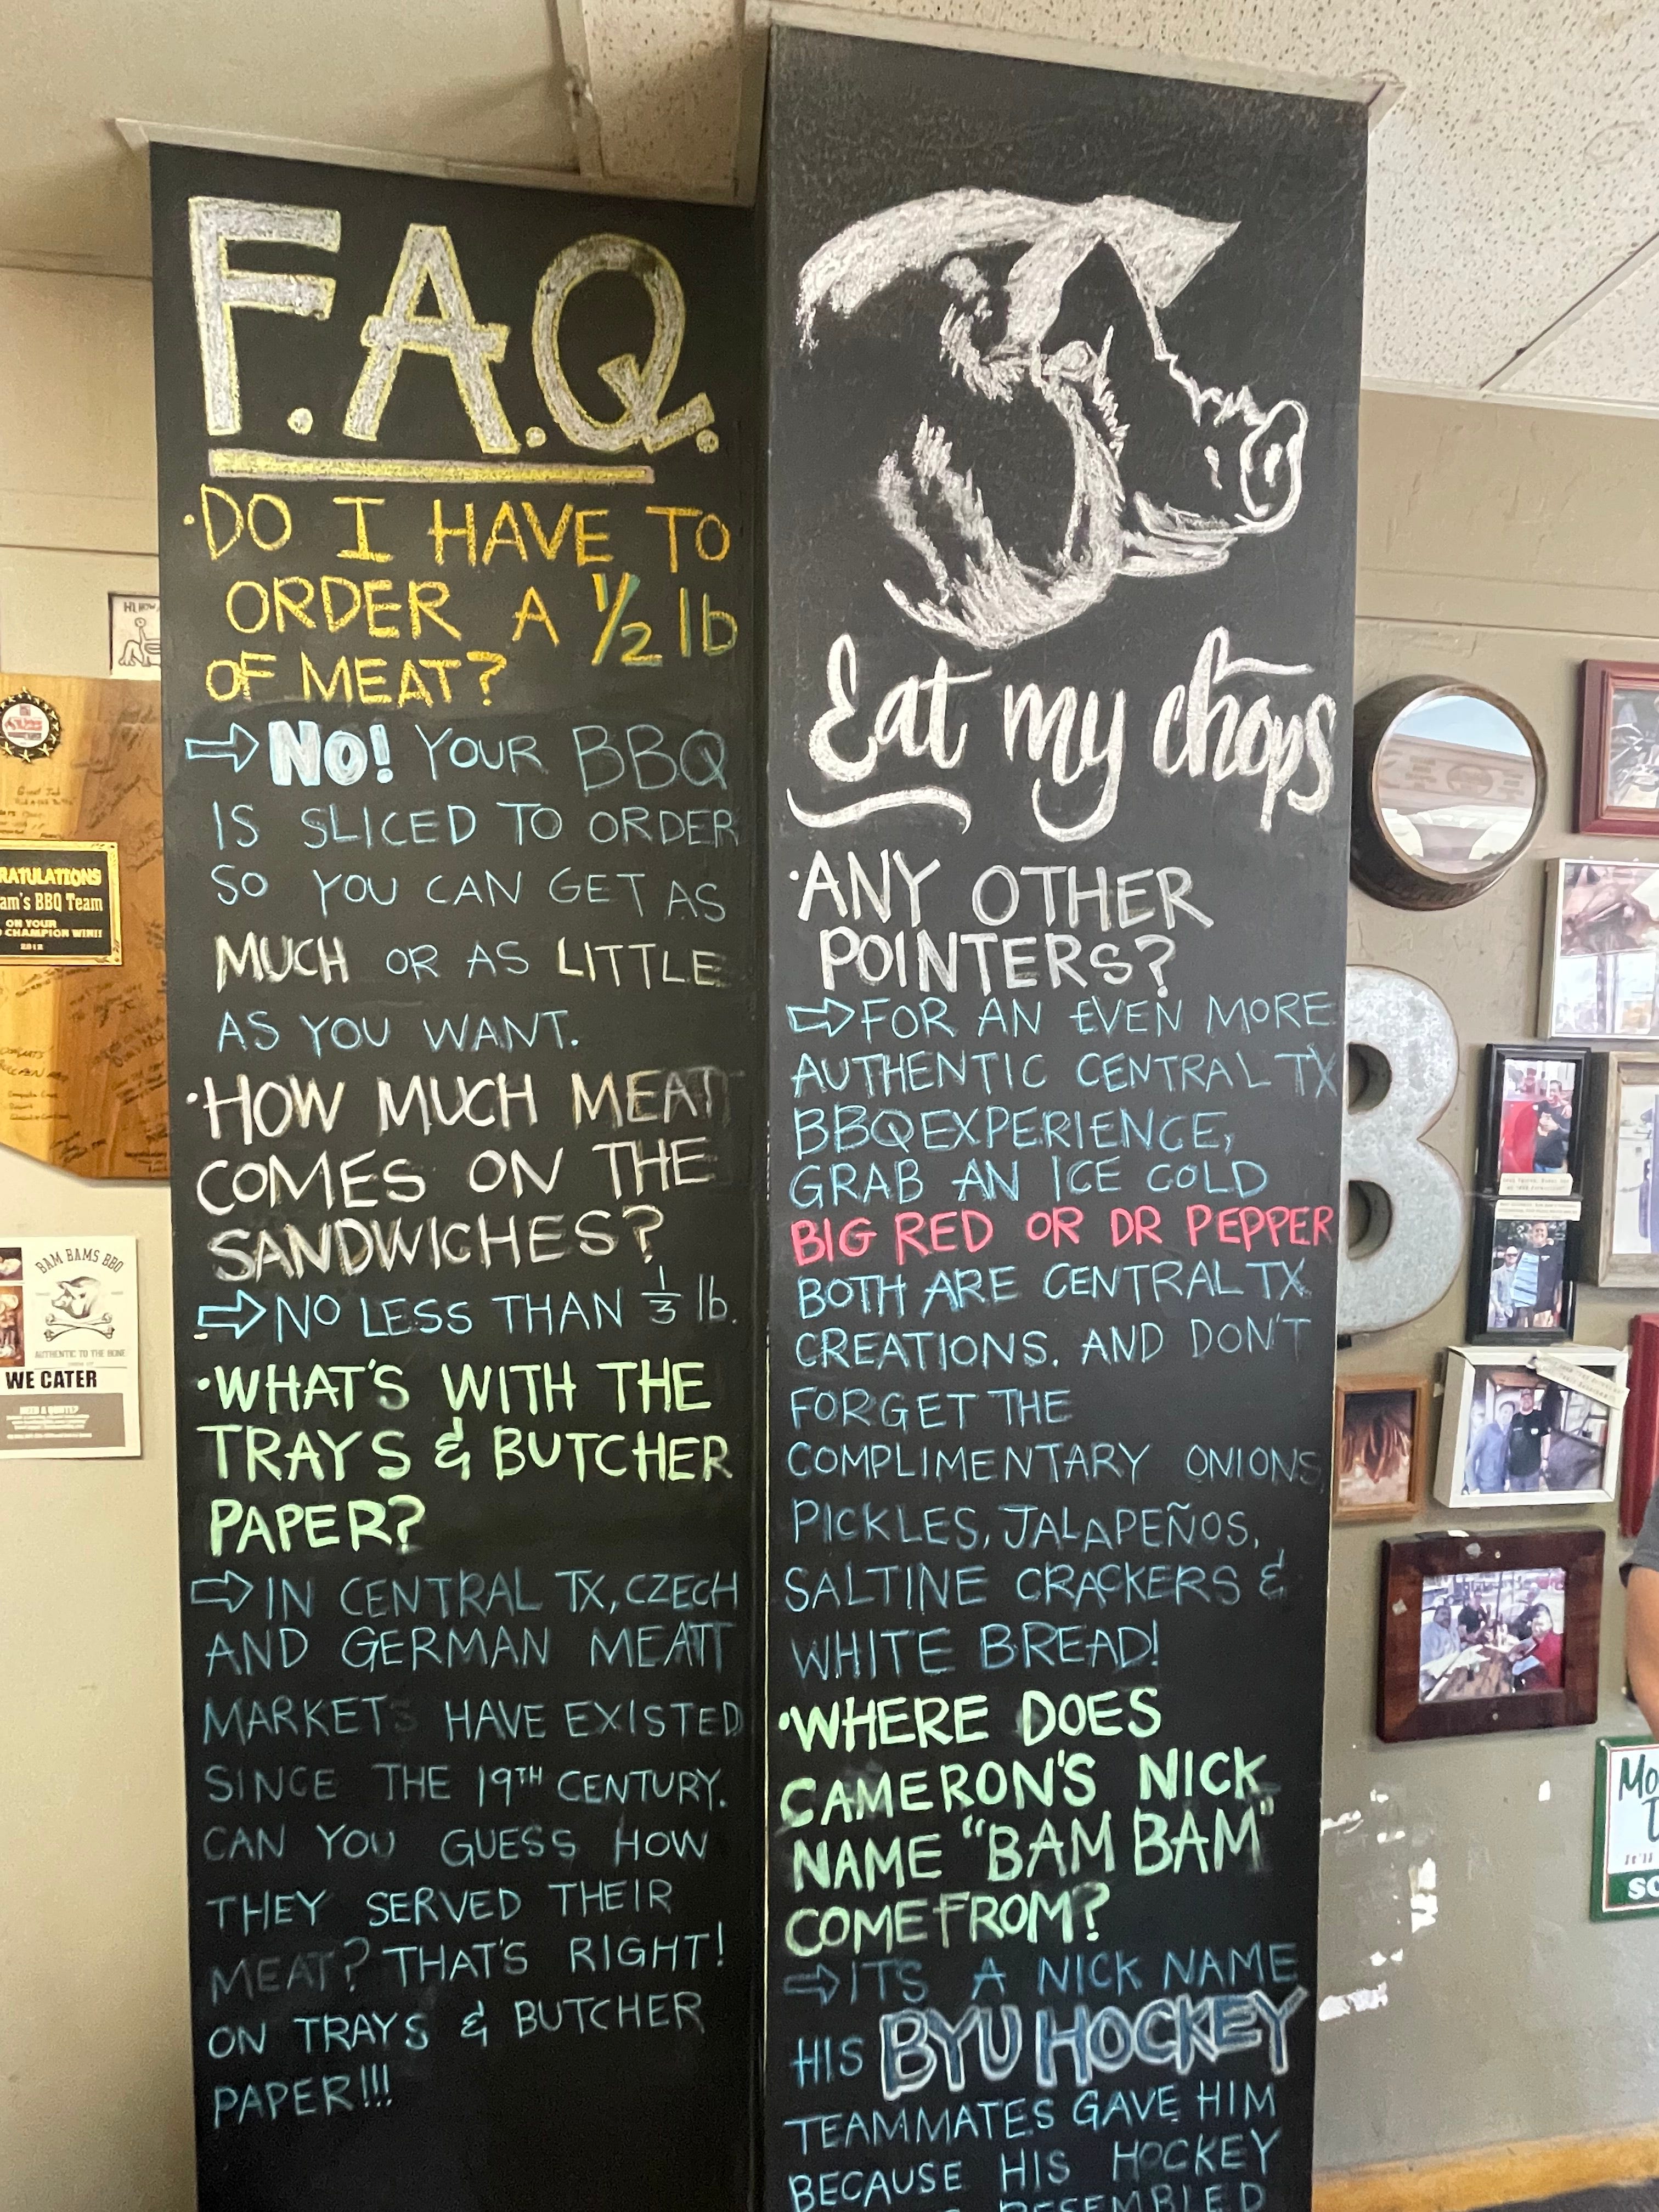 F.A.Q.
·DO I HAVE TO
ORDER A 1/2 lb
OF MEAT?
⇨ NO! YOUR BBQ
IS SLICED TO ORDER
SO YOU CAN GET AS
MUCH OR AS LITTLE
AS YOU WANT.
·HOW MUCH MEAT
COMES ON THE
SANDWICHES?
⇨ NO LESS THAN 1/3 lb.
·WHAT'S WITH THE
TRAYS & BUTCHER
PAPER?
⇨ IN CENTRAL TX, CZECH
AND GERMAN MEAT
MARKETS HAVE EXISTED
SINCE THE 19TH CENTURY.
CAN YOU GUESS HOW
THEY SERVED THEIR
MEAT? THAT'S RIGHT!
ON TRAYS & BUTCHER
PAPER!!!
Eat my chops
·ANY OTHER
POINTERS?
⇨ FOR AN EVEN MORE
AUTHENTIC CENTRAL TX
BBQ EXPERIENCE,
GRAB AN ICE COLD
BIG RED OR DR PEPPER
BOTH ARE CENTRAL TX
CREATIONS. AND DON'T
FORGET THE
COMPLIMENTARY ONIONS,
PICKLES, JALAPEÑOS,
SALTINE CRACKERS &
WHITE BREAD!
·WHERE DOES
CAMERON'S NICK
NAME "BAM BAM"
COME FROM?
⇨ ITS A NICK NAME
HIS BYU HOCKEY
TEAMMATES GAVE HIM
BECAUSE HIS HOCKEY
RESEMBLED
RATULATIONS
am's BBQ Team
ON YOUR
CHAMPION WIN!!
2012
BAM BAMS BBQ
AUTHENTIC TO THE BONE
WE CATER
NEED A QUOTE?
B